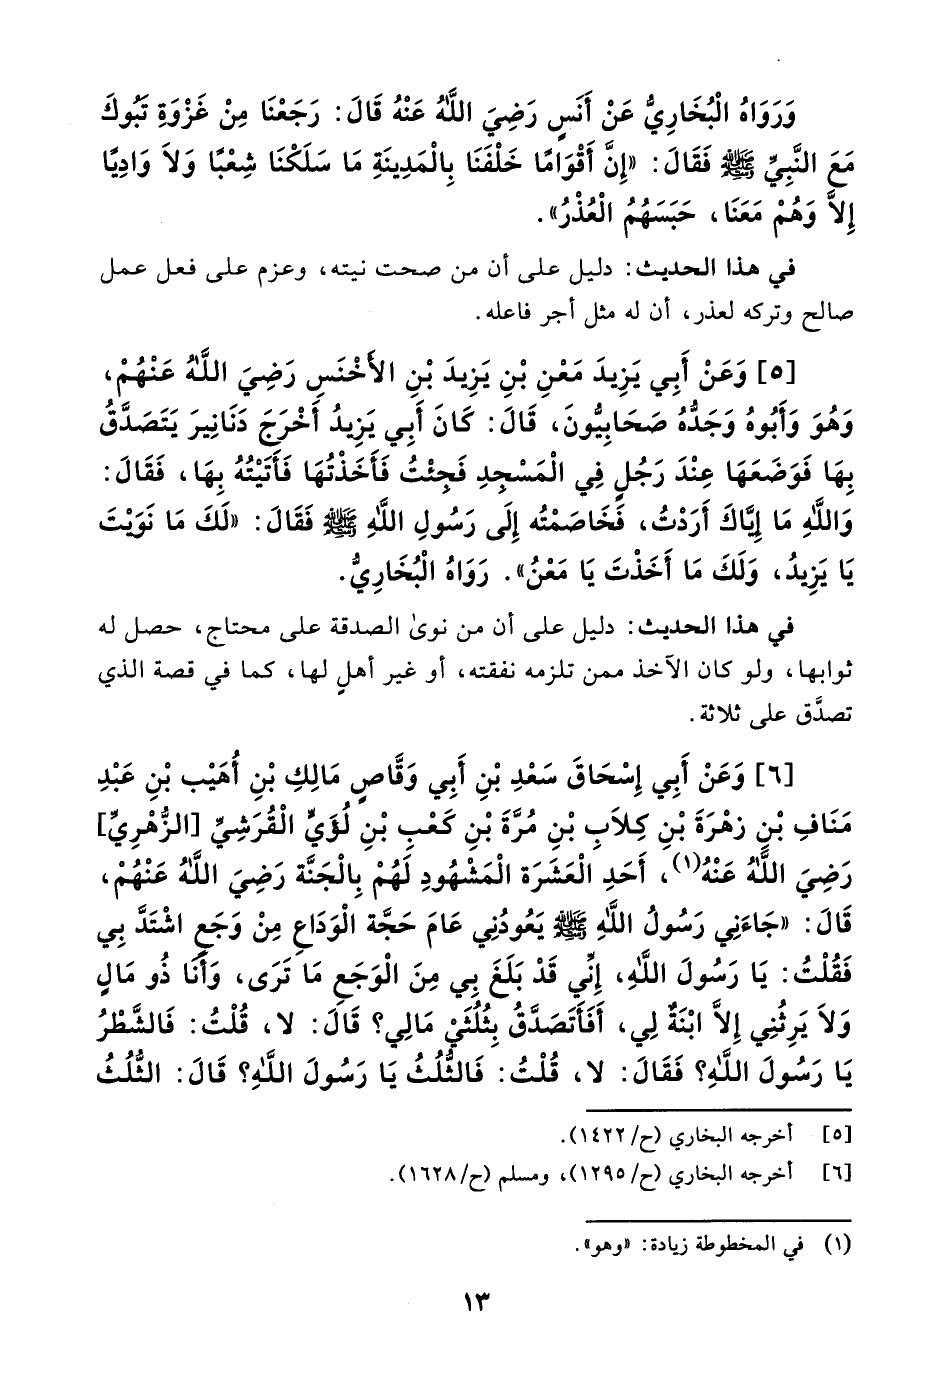 وَرَوَاهُ الْبُخَارِيُّ عَنْ أَنَسٍ رَضِيَ اللَّهُ عَنْهُ قَالَ: رَجَعْنَا مِنْ غَزْوَةِ تَبُوكَ
مَعَ النَّبِيِّ ﷺ فَقَالَ: «إِنَّ أَقْوَامًا خَلْفَنَا بِالْمَدِينَةِ مَا سَلَكْنَا شِعْبًا وَلاَ وَادِيًا
إِلاَّ وَهُمْ مَعَنَا، حَبَسَهُمُ الْعُذْرُ».
في هذا الحديث: دليل على أن من صحت نيته، وعزم على فعل عمل
صالح وتركه لعذر، أن له مثل أجر فاعله.
[٥] وَعَنْ أَبِي يَزِيدَ مَعْنِ بْنِ يَزِيدَ بْنِ الأَخْنَسِ رَضِيَ اللَّهُ عَنْهُمْ،
وَهُوَ وَأَبُوهُ وَجَدُّهُ صَحَابِيُّونَ، قَالَ: كَانَ أَبِي يَزِيدُ أَخْرَجَ دَنَانِيرَ يَتَصَدَّقُ
بِهَا فَوَضَعَهَا عِنْدَ رَجُلٍ فِي الْمَسْجِدِ فَجِئْتُ فَأَخَذْتُهَا فَأَتَيْتُهُ بِهَا، فَقَالَ:
وَاللَّهِ مَا إِيَّاكَ أَرَدْتُ، فَخَاصَمْتُه إِلَى رَسُولِ اللَّهِ ﷺ فَقَالَ: «لَكَ مَا نَوَيْتَ
يَا يَزِيدُ، وَلَكَ مَا أَخَذْتَ يَا مَعْنُ». رَوَاهُ الْبُخَارِيُّ.
في هذا الحديث: دليل على أن من نوىٰ الصدقة على محتاج، حصل له
ثوابها، ولو كان الآخذ ممن تلزمه نفقته، أو غير أهلٍ لها، كما في قصة الذي
تصدَّق على ثلاثة.
[٦] وَعَنْ أَبِي إِسْحَاقَ سَعْدِ بْنِ أَبِي وَقَّاصٍ مَالِكِ بْنِ أُهَيْبِ بْنِ عَبْدِ
مَنَافِ بْنِ زهْرَةَ بْنِ كِلاَبِ بْنِ مُرَّةَ بْنِ كَعْبِ بْنِ لُؤَيٍّ الْقُرَشِيِّ [الزُّهْرِيِّ]
رَضِيَ اللَّهُ عَنْهُ(١)، أَحَدِ الْعَشَرَة الْمَشْهُودِ لَهُمْ بِالْجَنَّة رَضِيَ اللَّهُ عَنْهُمْ،
قَالَ: «جَاءَنِي رَسُولُ اللَّهِ ﷺ يَعُودُنِي عَامَ حَجَّة الْوَدَاعِ مِنْ وَجَعٍ اشْتَدَّ بِي
فَقُلْتُ: يَا رَسُولَ اللَّهِ، إِنِّي قَدْ بَلَغَ بِي مِنَ الْوَجَعِ مَا تَرَى، وَأَنَا ذُو مَالٍ
وَلاَ يَرِثُنِي إِلاَّ ابْنَةٌ لِي، أَفَأَتَصَدَّقُ بِثُلُثَيْ مَالِي؟ قَالَ: لا، قُلْتُ: فَالشَّطْرُ
يَا رَسُولَ اللَّهِ؟ فَقَالَ: لا، قُلْتُ: فَالثُّلُثُ يَا رَسُولَ اللَّهِ؟ قَالَ: الثُّلُثُ
[٥] أخرجه البخاري (ح/١٤٢٢).
[٦] أخرجه البخاري (ح/١٢٩٥)، ومسلم (ح/١٦٢٨).
(١) في المخطوطة زيادة: «وهو».
١٣